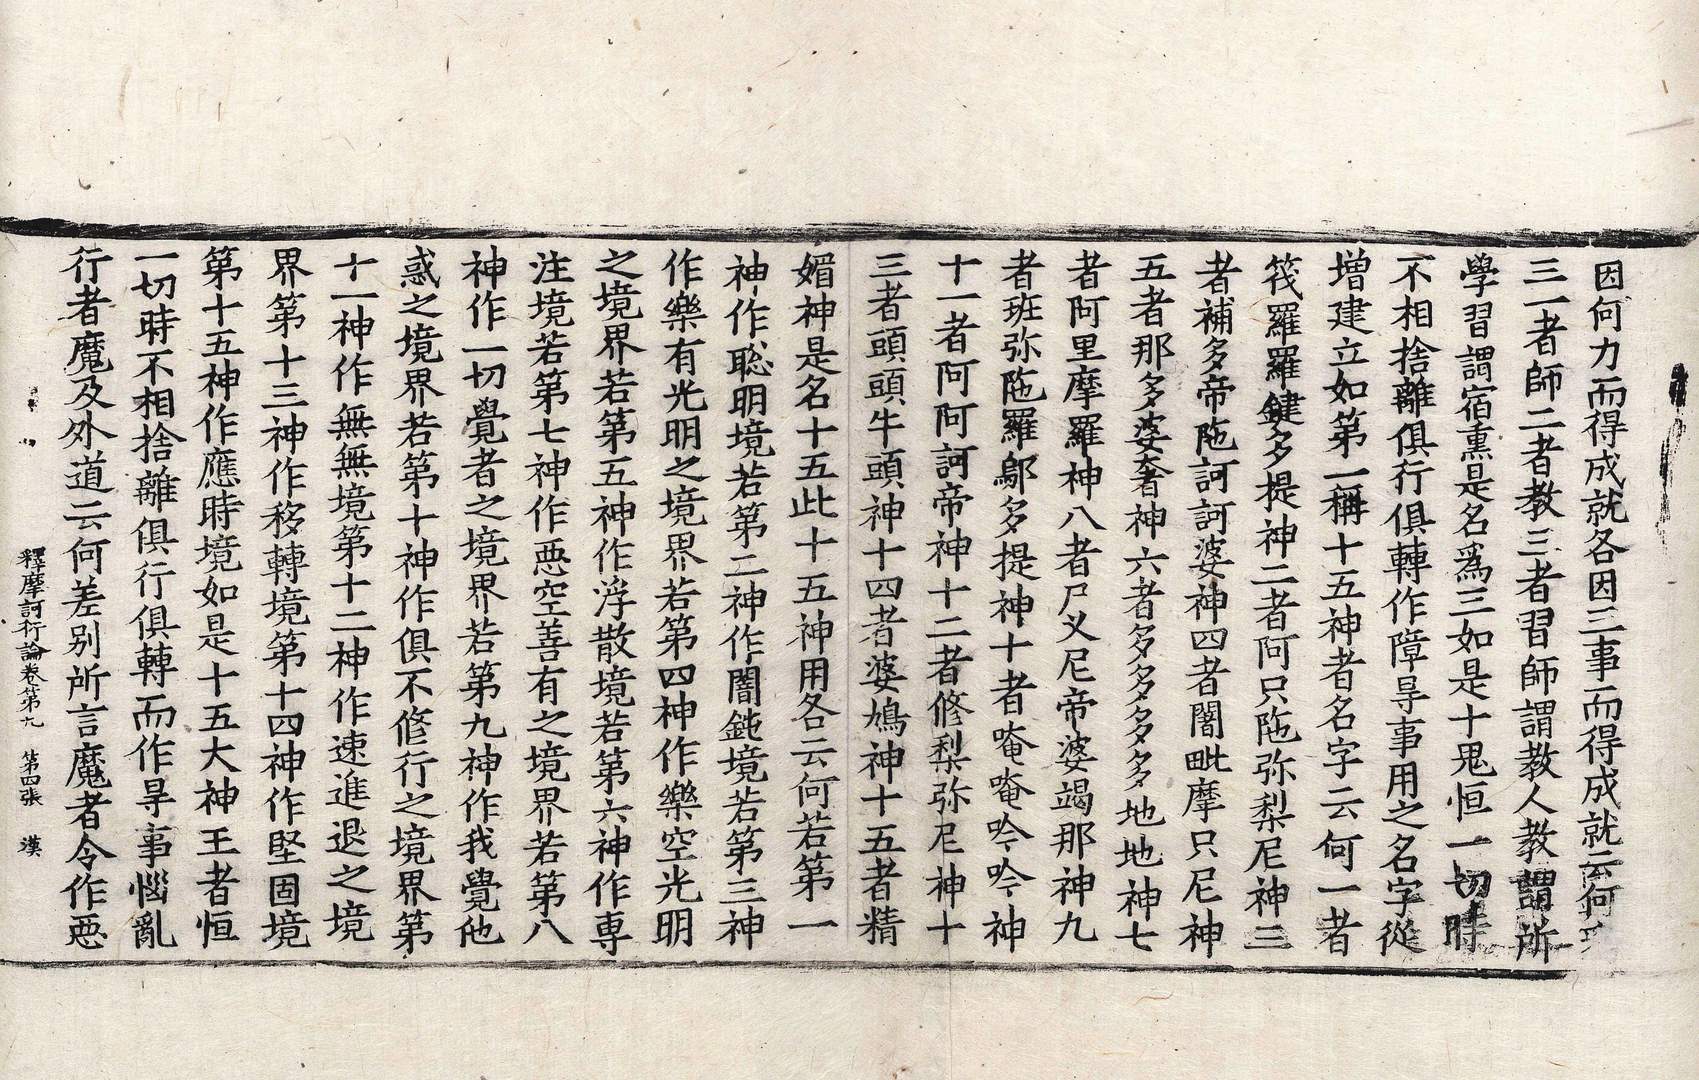 因何力而得成就各因三事而得成就云何
三一者師二者教三者習師謂教人教謂所
學習謂宿熏是名爲三如是十鬼恒一切時
不相捨離俱行俱轉作障㝵事用之名字從
增建立如第一稱十五神者名字云何一者
筏羅羅鍵多提神二者阿只陁弥梨尼神三
者補多帝陁訶訶婆神四者闇毗摩只尼神
五者那多婆奢神六者多多多多地地神七
者阿里摩羅神八者尸叉尼帝婆竭那神九
者班弥陁羅鄔多提神十者唵唵吟吟神
十一者阿阿訶帝神十二者修梨弥尼神十
三者頭頭牛頭神十四者婆鳩神十五者精
媚神是名十五此十五神用各云何若第一
神作聡明境若第二神作闇鈍境若第三神
作樂有光明之境界若第四神作樂空光明
之境界若第五神作浮散境若第六神作専
注境若第七神作悪空善有之境界若第八
神作一切覺者之境界若第九神作我覺他
惑之境界若第十神作俱不修行之境界第
十一神作無無境第十二神作速進退之境
界第十三神作移轉境第十四神作堅固境
第十五神作應時境如是十五大神王者恒
一切時不相捨離俱行俱轉而作㝵事惱亂
行者魔及外道云何差別所言魔者令作悪
釋摩訶衍論卷第九 第四張 漢